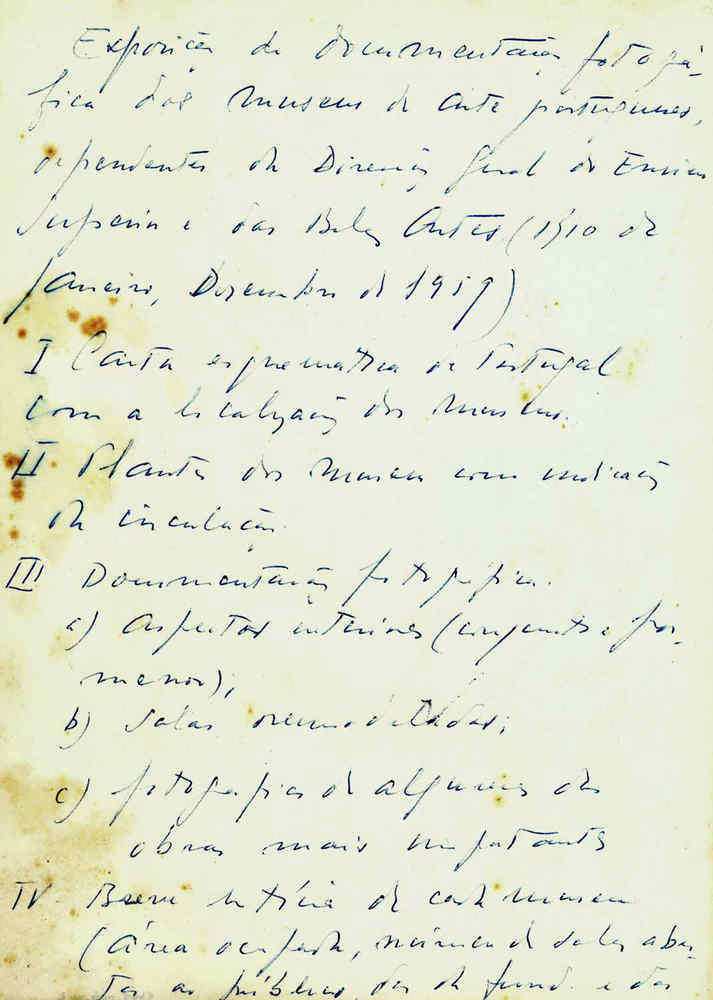 Exposição de documentação fotográ-
fica dos museus de arte portugueses,
dependentes da Direcção Geral do Ensino
Superior e das Belas Artes (Rio de
Janeiro, Dezembro de 1959)
I Carta esquemática de Portugal
com a localização dos museus.
II Plantas dos museus com indicação
da circulação.
III Documentação fotográfica.
a) Aspectos interiores (conjunto e por-
menor);
b) Salas remodeladas;
c) fotografias de algumas das
obras mais importantes
IV Breve notícia de cada museu
(área ocupada, número de salas aber-
tas ao público, da fund. e das